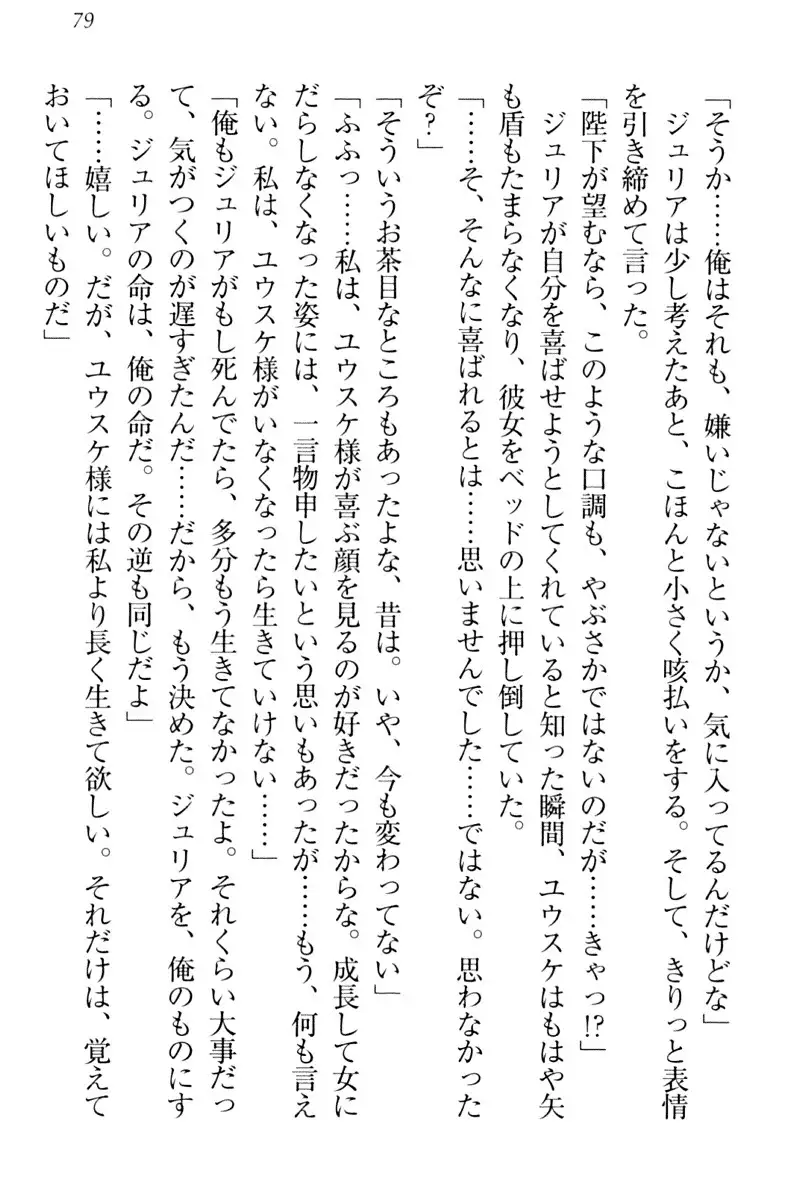 79
「そうか……俺はそれも、嫌いじゃないというか、気に入ってるんだけどな」
ジュリアは少し考えたあと、こほんと小さく咳払いをする。そして、きりっと表情
を引き締めて言った。
「陛下が望むなら、このような口調も、やぶさかではないのだが……きゃっ!?」
ジュリアが自分を喜ばせようとしてくれていると知った瞬間、ユウスケはもはや矢
も盾もたまらなくなり、彼女をベッドの上に押し倒していた。
「……そ、そんなに喜ばれるとは……思いませんでした……ではない。思わなかった
ぞ？」
「そういうお茶目なところもあったよな、昔は。いや、今も変わってない」
「ふふっ……私は、ユウスケ様が喜ぶ顔を見るのが好きだったからな。成長して女に
だらしなくなった姿には、一言物申したいという思いもあったが……もう、何も言え
ない。私は、ユウスケ様がいなくなったら生きていけない……」
「俺もジュリアがもし死んでたら、多分もう生きてなかったよ。それくらい大事だっ
て、気がつくのが遅すぎたんだ……だから、もう決めた。ジュリアを、俺のものにす
る。ジュリアの命は、俺の命だ。その逆も同じだよ」
「……嬉しい。だが、ユウスケ様には私より長く生きて欲しい。それだけは、覚えて
おいてほしいものだ」